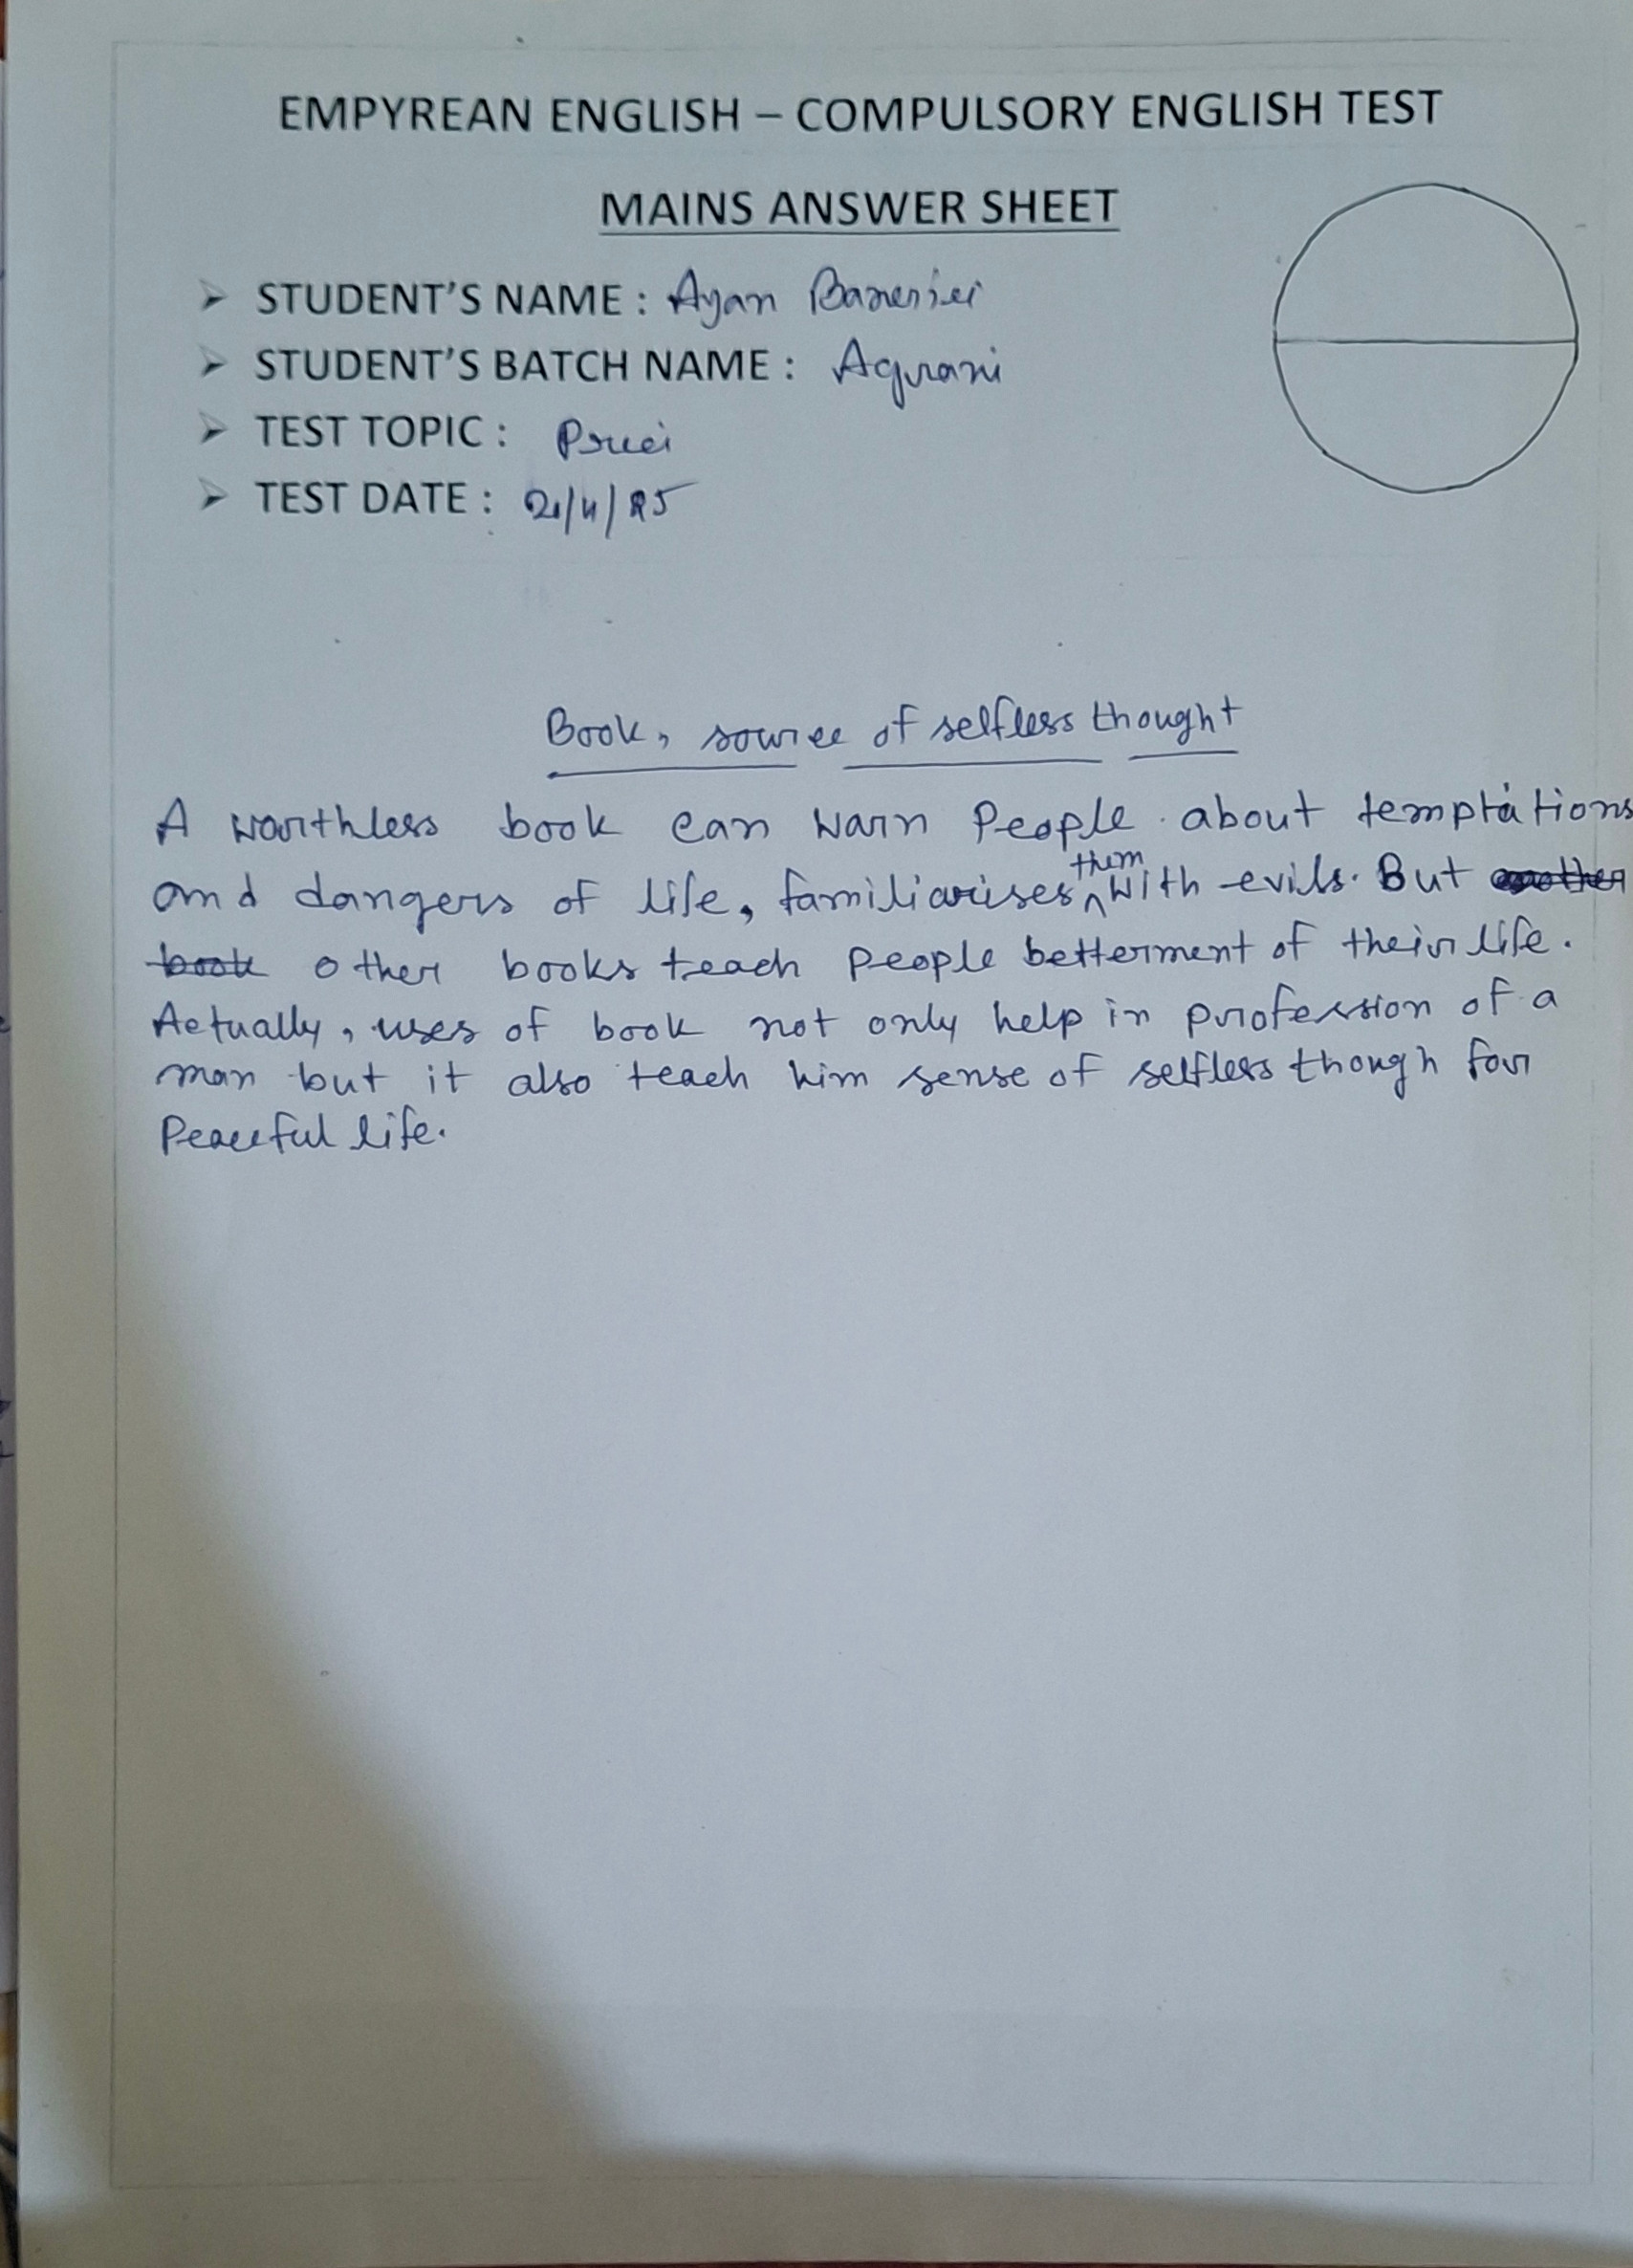 EMPYREAN ENGLISH – COMPULSORY ENGLISH TEST
MAINS ANSWER SHEET
➢ STUDENT'S NAME : Ayan Banerjei
➢ STUDENT'S BATCH NAME : Agrani
➢ TEST TOPIC :
➢ TEST DATE :
Book, source of selfless thought
A worthless book can warn People about temptations
and dangers of life, familiarises them with evils. But another
book other books teach People betterment of their life.
Actually, uses of book not only help in profession of a
man but it also teach him sense of selfless though for
Peaceful life.